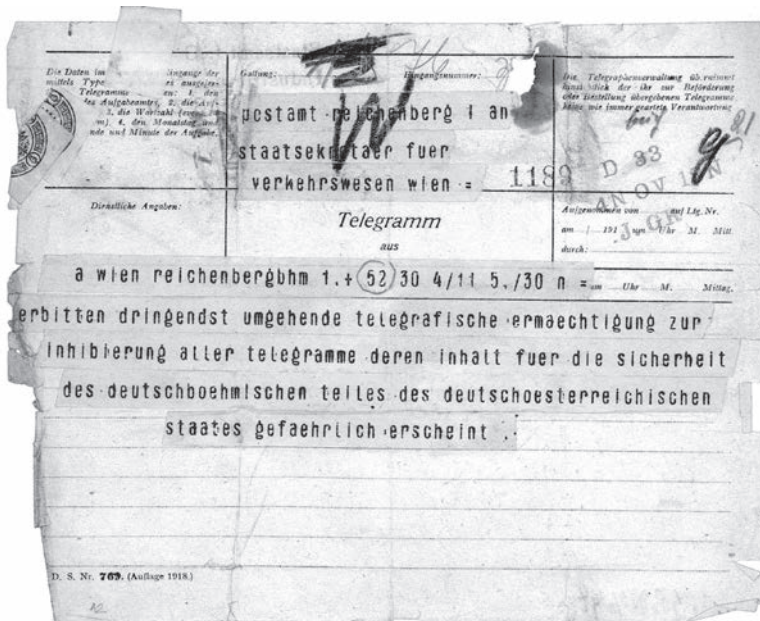 Die Daten im Eingange der
mittels Type es ausgefer-
Telegramme zu: 1. den
des Aufgabeamtes, 2. die Auf-
3. die Wortzahl
4. den Monatstag
nde und Minute der Aufgabe.
Gattung: Eingangsnummer:
Die Telegraphenverwaltung übernimmt
hinsichtlich der ihr zur Beförderung
oder Bestellung übergebenen Telegramme
keine wie immer geartete Verantwortung
postamt reichenberg 1 an
staatsekretaer fuer
verkehrswesen wien =
1189
D 33
4 NOV 1
Dienstliche Angaben:
Telegramm
aus
Aufgenommen von auf Ltg. Nr.
am 191 um Uhr M. Mitt.
durch:
a wien reichenbergbhm 1.+ 52 30 4/11 5,/30 n =
am Uhr M. Mittag.
erbitten dringendst umgehende telegrafische ermaechtigung zur
inhibierung aller telegramme deren inhalt fuer die sicherheit
des deutschboehmischen teiles des deutschoesterreichischen
staates gefaehrlich erscheint .
D. S. Nr. 769. (Auflage 1918.)